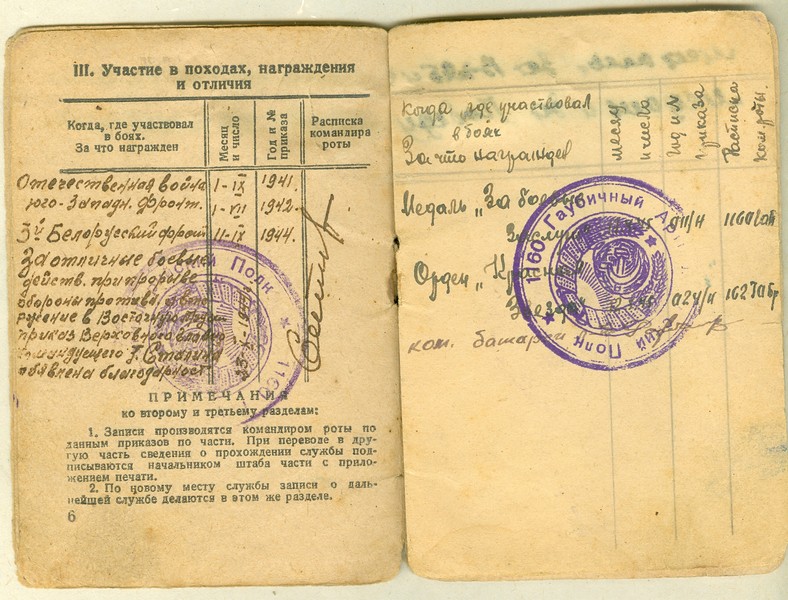 III. Участие в походах, награждения
и отличия
Когда, где участвовал
в боях.
За что награжден
Месяц
и число
Год и №
приказа
Расписка
командира
роты
Отечественная война
Юго-Западн. фронт.
I-IX 1941.
I-VII 1942.
3й Белорусский фронт II-IX 1944.
За отличные боевые
действ. при прорыве
обороны противн. и втор
жение в Восточную Прусси
приказ Верховного Главно
командующего т. Сталина
объявлена благодарност
ПРИМЕЧАНИЯ
ко второму и третьему разделам:
1. Записи производятся командиром роты по
данным приказов по части. При переводе в дру-
гую часть сведения о прохождении службы под-
писываются начальником штаба части с прило-
жением печати.
2. По новому месту службы записи о даль-
нейшей службе делаются в этом же разделе.
6
Полк
1160
Когда где участвовал
в боях
За что награжден
месяц
и число
Год и №
приказа
Расписка
ком. роты.
Медаль „За боевые
Заслуги
Орден „Красная
Звезда
ком. батареи
1160 Гаубичный
Полк